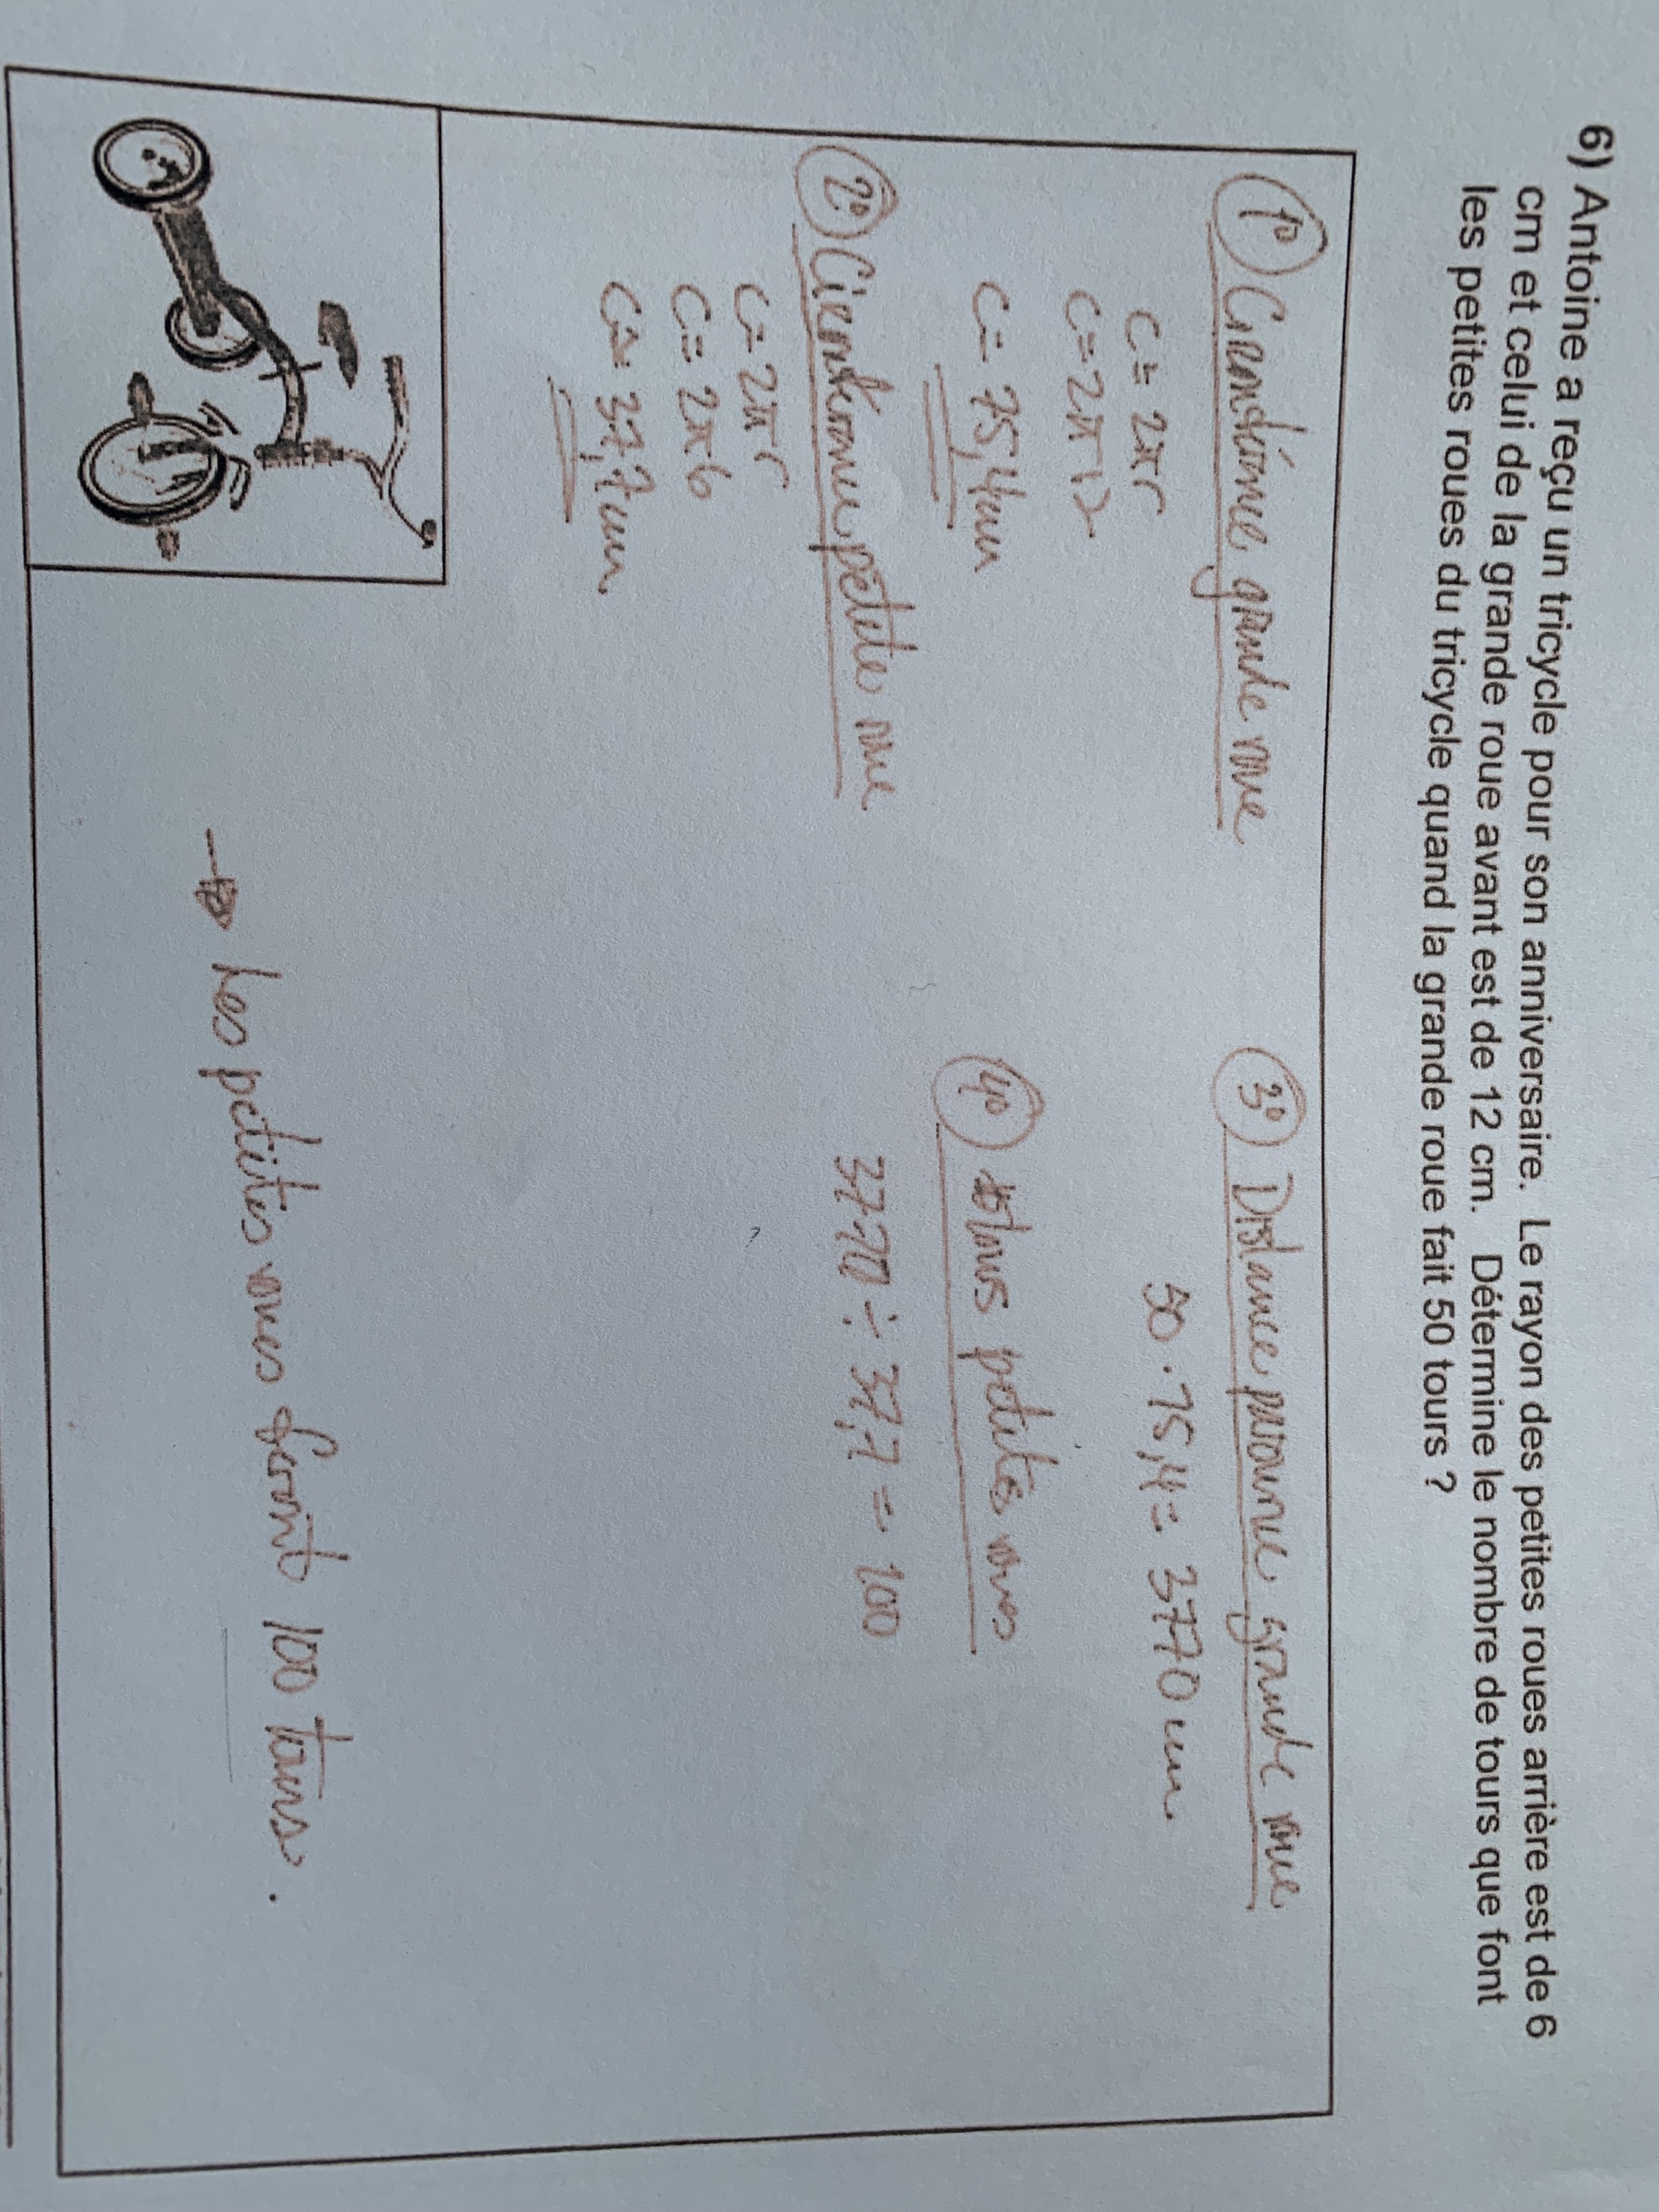 6) Antoine a reçu un tricycle pour son anniversaire. Le rayon des petites roues arrière est de 6
cm et celui de la grande roue avant est de 12 cm. Détermine le nombre de tours que font
les petites roues du tricycle quand la grande roue fait 50 tours ?
1° Circonférence grande roue
C = 2πr
C = 2π12
C = 75,4 cm
2° Circonférence petite roue
C = 2πr
C = 2π6
C = 37,7 cm
3° Distance parcourue grande roue
50 · 75,4 = 3770 cm
4° tours petites roues
3770 ÷ 37,7 = 100
→ Les petites roues feront 100 tours.